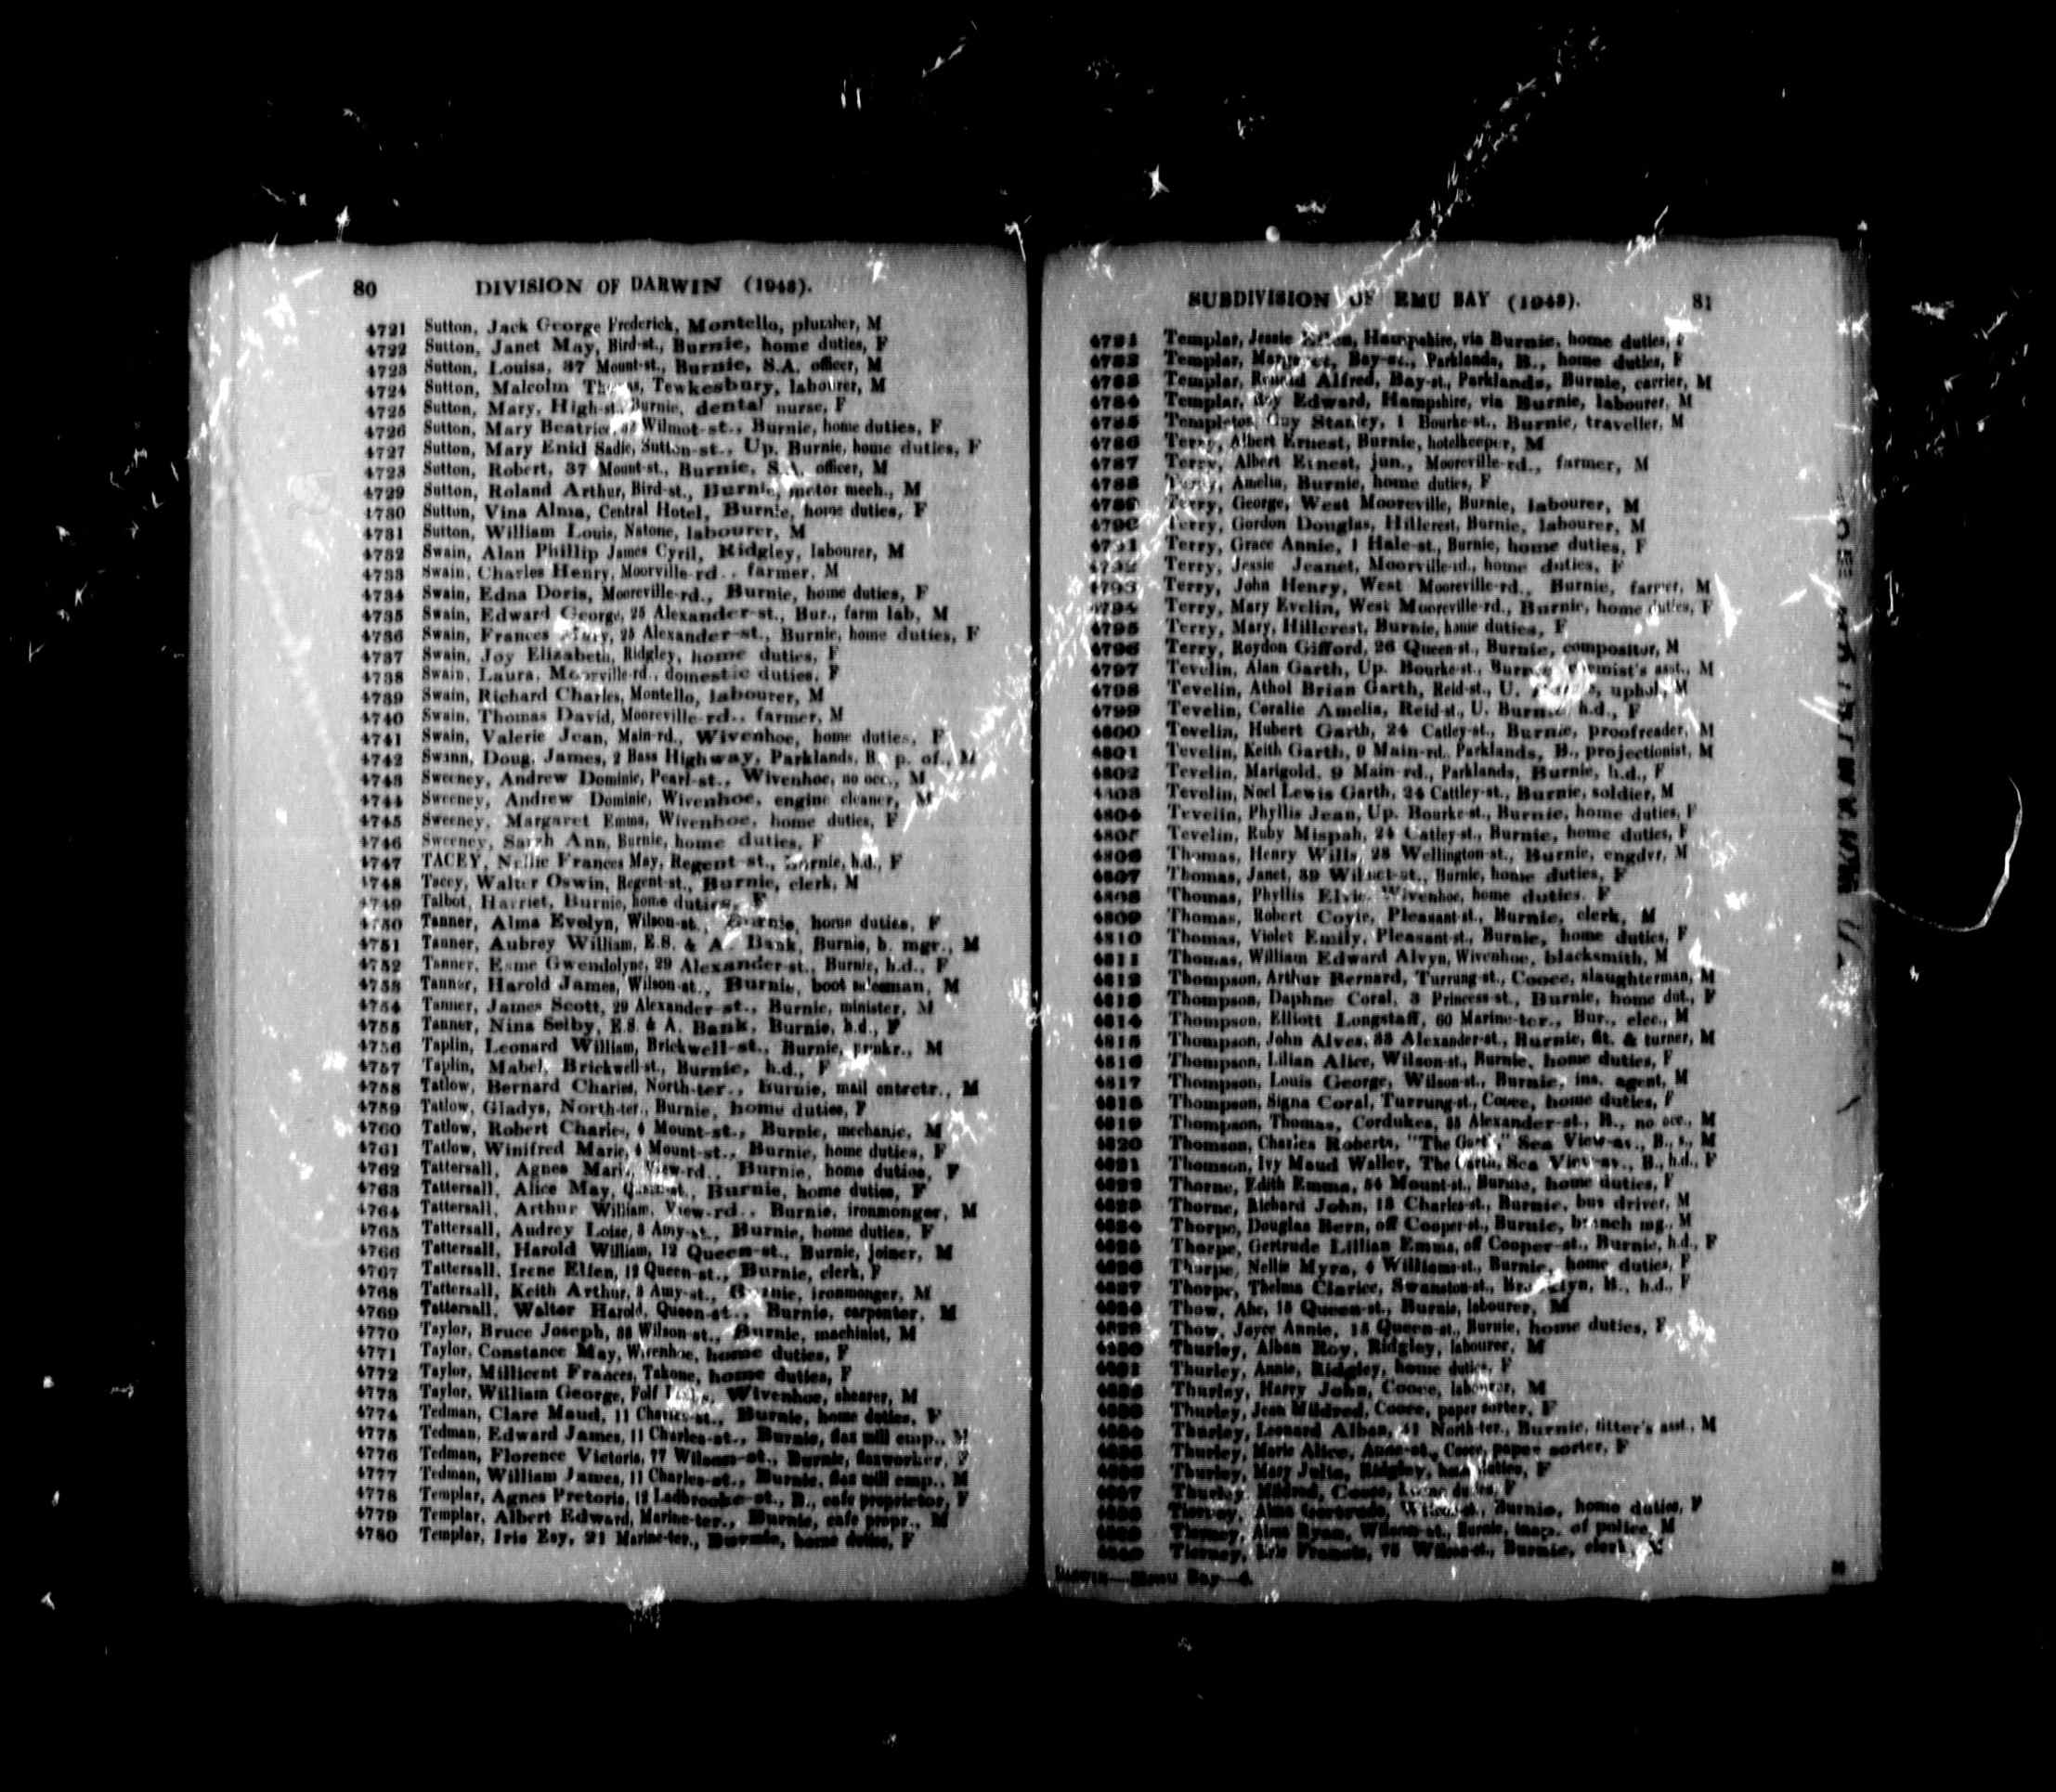 80 DIVISION OF DARWIN (1948).
4721 Sutton, Jack George Frederick, Montello, plumber, M
4722 Sutton, Janet May, Bird-st., Burnie, home duties, F
4723 Sutton, Louisa, 37 Mount-st., Burnie, S.A. officer, M
4724 Sutton, Malcolm Thomas, Tewkesbury, labourer, M
4725 Sutton, Mary, High-st., Burnie, dental nurse, F
4726 Sutton, Mary Beatrice, Wilmot-st., Burnie, home duties, F
4727 Sutton, Mary Enid Sadie, Sutton-st., Up. Burnie, home duties, F
4728 Sutton, Robert, 37 Mount-st., Burnie, S.A. officer, M
4729 Sutton, Roland Arthur, Bird-st., Burnie, motor mech., M
4730 Sutton, Vina Alma, Central Hotel, Burnie, home duties, F
4731 Sutton, William Louis, Natone, labourer, M
4732 Swain, Alan Phillip James Cyril, Ridgley, labourer, M
4733 Swain, Charles Henry, Moorville-rd., farmer, M
4734 Swain, Edna Doris, Mooreville-rd., Burnie, home duties, F
4735 Swain, Edward George, 25 Alexander-st., Bur., farm lab, M
4736 Swain, Frances Mary, 25 Alexander-st., Burnie, home duties, F
4737 Swain, Joy Elizabeth, Ridgley, home duties, F
4738 Swain, Laura, Moorville-rd., domestic duties, F
4739 Swain, Richard Charles, Montello, labourer, M
4740 Swain, Thomas David, Mooreville-rd., farmer, M
4741 Swain, Valerie Jean, Main-rd., Wivenhoe, home duties, F
4742 Swann, Doug. James, 2 Bass Highway, Parklands, B., p. of., M
4743 Sweeney, Andrew Dominic, Pearl-st., Wivenhoe, no occ., M
4744 Sweeney, Andrew Dominic, Wivenhoe, engine cleaner, M
4745 Sweeney, Margaret Emma, Wivenhoe, home duties, F
4746 Sweeney, Sarah Ann, Burnie, home duties, F
4747 TACEY, Nellie Frances May, Regent-st., Burnie, h.d., F
4748 Tacey, Walter Oswin, Regent-st., Burnie, clerk, M
4749 Talbot, Harriet, Burnie, home duties, F
4750 Tanner, Alma Evelyn, Wilson-st., Burnie, home duties, F
4751 Tanner, Aubrey William, E.S. & A. Bank, Burnie, b. mgr., M
4752 Tanner, Esme Gwendolyne, 29 Alexander-st., Burnie, h.d., F
4753 Tanner, Harold James, Wilson-st., Burnie, boot salesman, M
4754 Tanner, James Scott, 29 Alexander-st., Burnie, minister, M
4755 Tanner, Nina Selby, E.S. & A. Bank, Burnie, h.d., F
4756 Taplin, Leonard William, Brickwell-st., Burnie, M
4757 Taplin, Mabel, Brickwell-st., Burnie, h.d., F
4758 Tatlow, Bernard Charles, North-ter., Burnie, mail cntrctr., M
4759 Tatlow, Gladys, North-ter., Burnie, home duties, F
4760 Tatlow, Robert Charles, 4 Mount-st., Burnie, mechanic, M
4761 Tatlow, Winifred Marie, 4 Mount-st., Burnie, home duties, F
4762 Tattersall, Agnes Maria, View-rd., Burnie, home duties, F
4763 Tattersall, Alice May, Queen-st., Burnie, home duties, F
4764 Tattersall, Arthur William, View-rd., Burnie, ironmonger, M
4765 Tattersall, Audrey Loise, 3 Amy-st., Burnie, home duties, F
4766 Tattersall, Harold William, 12 Queen-st., Burnie, joiner, M
4767 Tattersall, Irene Ellen, 12 Queen-st., Burnie, clerk, F
4768 Tattersall, Keith Arthur, 3 Amy-st., Burnie, ironmonger, M
4769 Tattersall, Walter Harold, Queen-st., Burnie, carpenter, M
4770 Taylor, Bruce Joseph, 88 Wilson-st., Burnie, machinist, M
4771 Taylor, Constance May, Wivenhoe, home duties, F
4772 Taylor, Millicent Frances, Takone, home duties, F
4773 Taylor, William George, Wivenhoe, shearer, M
4774 Tedman, Clare Maud, 11 Charles-st., Burnie, home duties, F
4775 Tedman, Edward James, 11 Charles-st., Burnie, flax mill emp., M
4776 Tedman, Florence Victoria, 77 Wilson-st., Burnie, flaxworker, F
4777 Tedman, William James, 11 Charles-st., Burnie, flax mill emp., M
4778 Templar, Agnes Pretoria, 12 Ladbrooke-st., B., cafe proprietor, F
4779 Templar, Albert Edward, Marine-ter., Burnie, cafe propr., M
4780 Templar, Iris Esy, 21 Marine-ter., Burnie, home duties, F
SUBDIVISION OF EMU BAY (1948). 81
4781 Templar, Jessie Hampshire, via Burnie, home duties, F
4782 Templar, Margaret, Bay-st., Parklands, B., home duties, F
4783 Templar, Ronald Alfred, Bay-st., Parklands, Burnie, carrier, M
4784 Templar, Roy Edward, Hampshire, via Burnie, labourer, M
4785 Templeton, Guy Stanley, 1 Bourke-st., Burnie, traveller, M
4786 Terry, Albert Ernest, Burnie, hotelkeeper, M
4787 Terry, Albert Ernest, jun., Mooreville-rd., farmer, M
4788 Terry, Amelia, Burnie, home duties, F
4789 Terry, George, West Mooreville, Burnie, labourer, M
4790 Terry, Gordon Douglas, Hillcrest, Burnie, labourer, M
4791 Terry, Grace Annie, 1 Hale-st., Burnie, home duties, F
4792 Terry, Jessie Jeanet, Moorville-rd., home duties, F
4793 Terry, John Henry, West Mooreville-rd., Burnie, farmer, M
4794 Terry, Mary Evelin, West Mooreville-rd., Burnie, home duties, F
4795 Terry, Mary, Hillcrest, Burnie, home duties, F
4796 Terry, Roydon Gifford, 26 Queen-st., Burnie, compositor, M
4797 Tevelin, Alan Garth, Up. Bourke-st., Burnie, chemist's asst., M
4798 Tevelin, Athol Brian Garth, Reid-st., U. Burnie, uphol., M
4799 Tevelin, Coralie Amelia, Reid-st., U. Burnie, h.d., F
4800 Tevelin, Hubert Garth, 24 Catley-st., Burnie, proofreader, M
4801 Tevelin, Keith Garth, 9 Main-rd., Parklands, B., projectionist, M
4802 Tevelin, Marigold, 9 Main-rd., Parklands, Burnie, h.d., F
4803 Tevelin, Noel Lewis Garth, 24 Cattley-st., Burnie, soldier, M
4804 Tevelin, Phyllis Jean, Up. Bourke-st., Burnie, home duties, F
4805 Tevelin, Ruby Mispah, 24 Catley-st., Burnie, home duties, F
4806 Thomas, Henry Wills, 28 Wellington-st., Burnie, engdvr, M
4807 Thomas, Janet, 39 Wilmot-st., Burnie, home duties, F
4808 Thomas, Phyllis Elvie, Wivenhoe, home duties, F
4809 Thomas, Robert Coyie, Pleasant-st., Burnie, clerk, M
4810 Thomas, Violet Emily, Pleasant-st., Burnie, home duties, F
4811 Thomas, William Edward Alvyn, Wivenhoe, blacksmith, M
4812 Thompson, Arthur Bernard, Turrung-st., Cooee, slaughterman, M
4813 Thompson, Daphne Coral, 3 Princess-st., Burnie, home dut., F
4814 Thompson, Elliott Longstaff, 60 Marine-ter., Bur., elec., M
4815 Thompson, John Alves, 35 Alexander-st., Burnie, fit. & turner, M
4816 Thompson, Lilian Alice, Wilson-st., Burnie, home duties, F
4817 Thompson, Louis George, Wilson-st., Burnie, ins. agent, M
4818 Thompson, Signa Coral, Turrung-st., Cooee, home duties, F
4819 Thompson, Thomas, Cordukes, 35 Alexander-st., B., no occ., M
4820 Thomson, Charles Roberts, "The Garth," Sea View-av., B., s., M
4821 Thomson, Ivy Maud Waller, The Garth, Sea View-av., B., h.d., F
4822 Thorne, Edith Emma, 54 Mount-st., Burnie, home duties, F
4823 Thorne, Richard John, 18 Charles-st., Burnie, bus driver, M
4824 Thorpe, Douglas Bern, off Cooper-st., Burnie, branch mg., M
4825 Thorpe, Gertrude Lillian Emma, off Cooper-st., Burnie, h.d., F
4826 Thorpe, Nellie Myra, 4 Williams-st., Burnie, home duties, F
4827 Thorpe, Thelma Clarice, Swanston-st., Brooklyn, B., h.d., F
4828 Thow, Abe, 15 Queen-st., Burnie, labourer, M
4829 Thow, Joyce Annie, 15 Queen-st., Burnie, home duties, F
4830 Thurley, Alban Roy, Ridgley, labourer, M
4831 Thurley, Annie, Ridgley, home duties, F
4832 Thurley, Harry John, Cooee, labourer, M
4833 Thurley, Jean Mildred, Cooee, paper sorter, F
4834 Thurley, Leonard Alban, 41 North-ter., Burnie, fitter's asst., M
4835 Thurley, Marie Alice, Cooee, paper sorter, F
4836 Thurley, Mary Julia, Ridgley, home duties, F
4837 Thurley, Mildred, Cooee, home duties, F
4838 Tierney, Alma Wilson-st., Burnie, home duties, F
4839 Tierney, Wilson-st., Burnie, insp. of police, M
4840 Tierney, Francis, 75 Wilson-st., Burnie, clerk, M